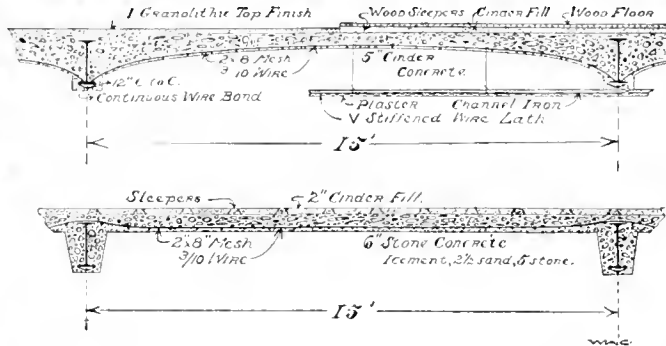 1 Granolithic Top Finish
Wood Sleepers
Cinder Fill
Wood Floor
2"x 8" Mesh
3/10 Wire
5" Cinder
Concrete.
12" C to C.
Continuous Wire Bond
Plaster
Channel Iron
V Stiffened Wire Lath
15'
Sleepers
2" Cinder Fill.
2"x 8" Mesh
3/10 Wire
6" Stone Concrete
1 cement, 2½ sand, 5 stone.
15'